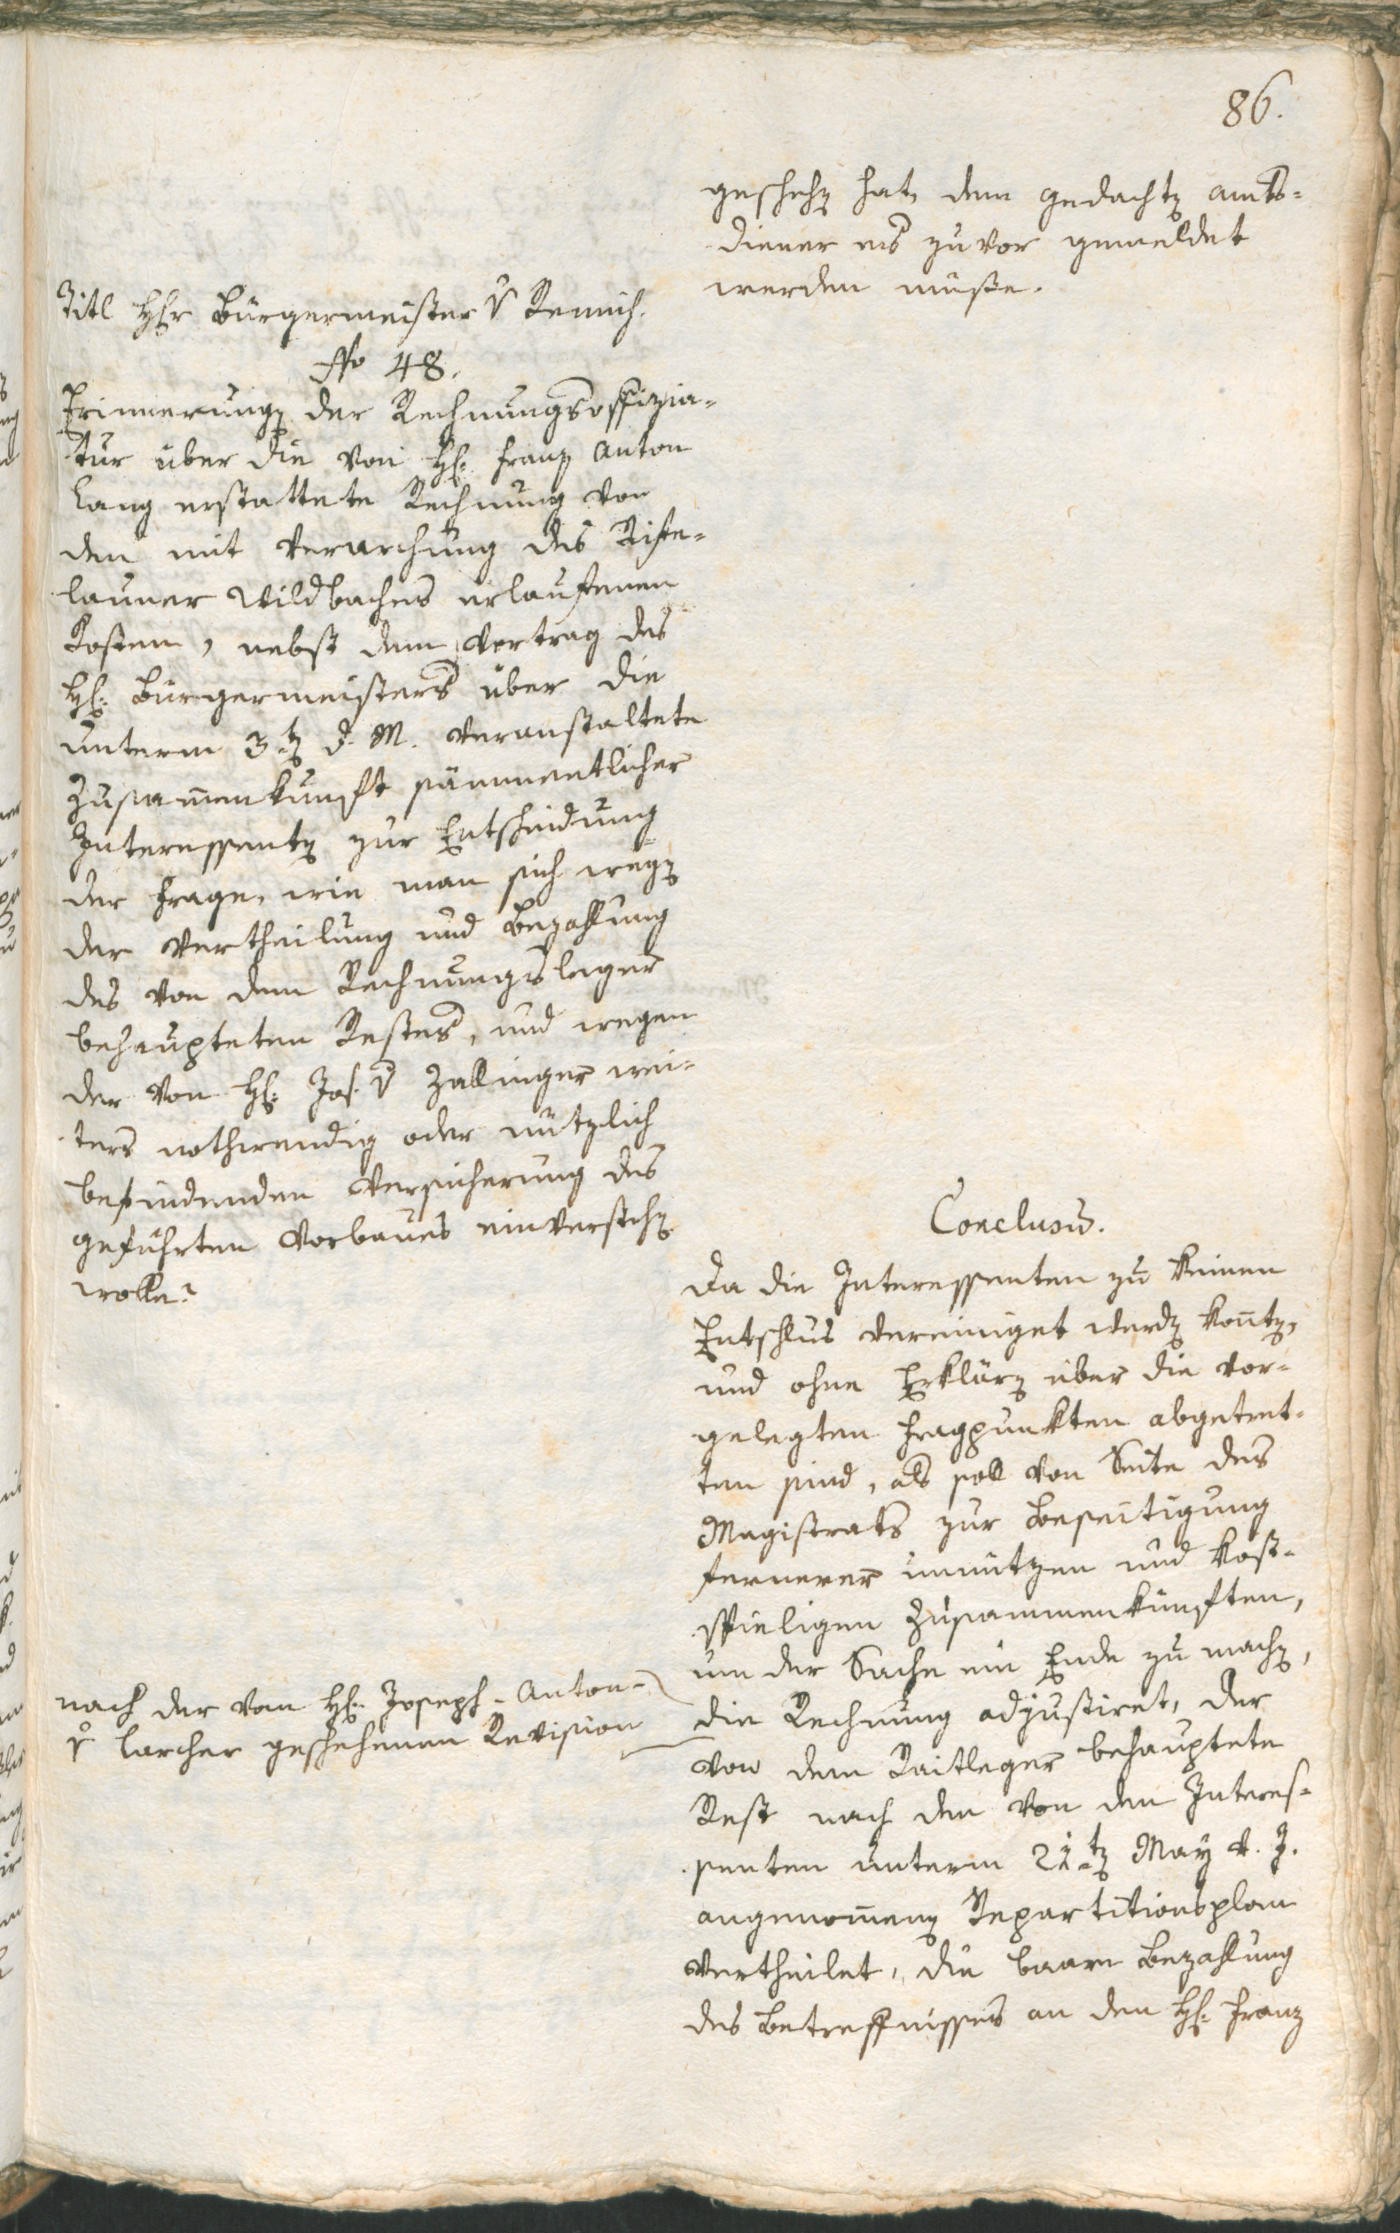 86.
geschehen hat, dem gedachten Amts-
diener es zuvor gemeldet
werden müße.
Titl HEr Bürgermeister v Remich.
No 48.
Erinnerungen der Rechnungsoffizia-
tur über die von H: Franz Anton
Lang erstattete Rechnung von
den mit Verarchung des Rife-
launer Wildbaches erlaufenen
Kosten, nebst dem Vortrag des
H: Bürgermeisters über die
unterm 3ten d. M. veranstaltete
Zusam̄enkunft sämmentlicher
Interessenten zur Entscheidung
der Frage, wie man sich wegen
der Vertheilung und Bezahlung
des von dem Rechnungsleger
behaupteten Restes, und wegen
der von H: Jos. v Zallinger wei-
ters nothwendig oder nützlich
befindenden Versicherung des
geführten Vorbaues einverstehen
wolle?
Conclusum.
Da die Interessenten zu keinen
Entschluß vereiniget werden kon̄ten,
und ohne Erklären über die vor-
gelegten Fragpunkten abgetret-
ten sind, als soll von Seite des
Magistrats zur Beseitigung
fernerer unnützen und kost-
spieligen Zusammenkünften,
um der Sache ein Ende zu machen,
die Rechnung adjustiret, der
nach der von H: Joseph Anton
v Larcher geschehenen Revision
von dem Raitleger behauptete
Rest nach den von den Interes-
senten unterm 21ten May v. J.
angenom̄enen Repartitionsplan
vertheilet, die baare Bezahlung
des Betreffnisses an den H: Franz